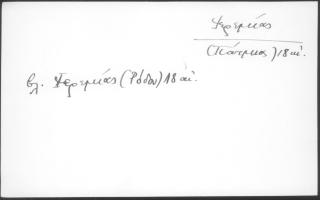 Ἱερεμίας
(Πάτμος) 18 αἰ.
βλ. Ἱερεμίας (Ρόδου) 18 αἰ.